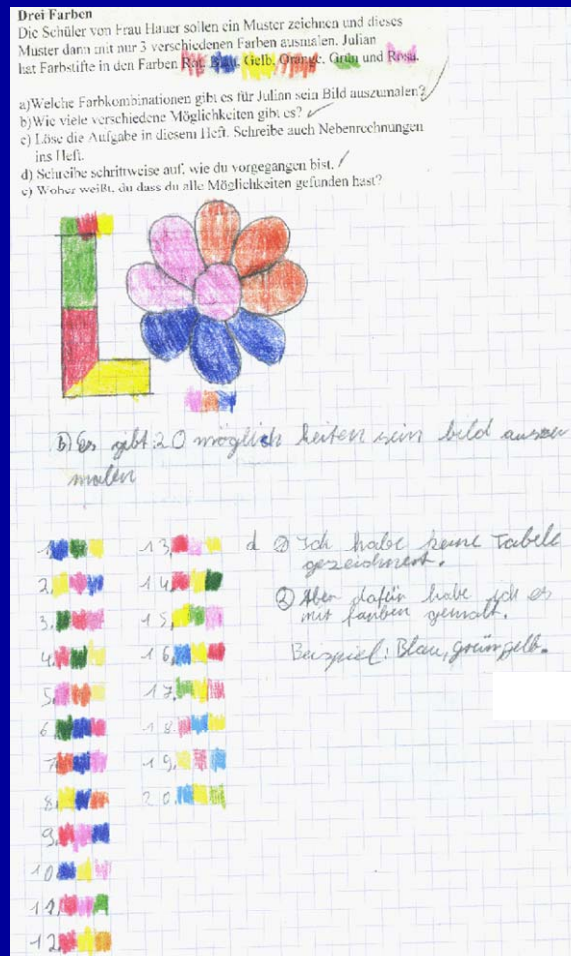 Drei Farben
Die Schüler von Frau Hauer sollen ein Muster zeichnen und dieses
Muster dann mit nur 3 verschiedenen Farben ausmalen. Julian
hat Farbstifte in den Farben Rot, Blau, Gelb, Orange, Grün und Rosa.
a)Welche Farbkombinationen gibt es für Julian sein Bild auszumalen?
b)Wie viele verschiedene Möglichkeiten gibt es?
c) Löse die Aufgabe in diesem Heft. Schreibe auch Nebenrechnungen
ins Heft.
d) Schreibe schrittweise auf, wie du vorgegangen bist.
e) Woher weißt, du dass du alle Möglichkeiten gefunden hast?
b) Es gibt 20 möglich keiten sein bild auszu
malen
1.
2.
3.
4.
5.
6
7.
8.
9.
10
11
12.
13.
14
15.
16.
17.
18.
19.
20.
d ① Ich habe keine Tabele
gezeichnent.
② Aber dafür habe ich es
mit farben gemalt.
Beispiel: Blau, grün, gelb.